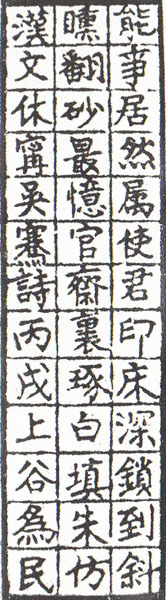 能事居然属使君印床深鎖到斜
曛翻砂最憶官齋裏琢白填朱仿
漢文休甯吳騫詩丙戌上谷為民